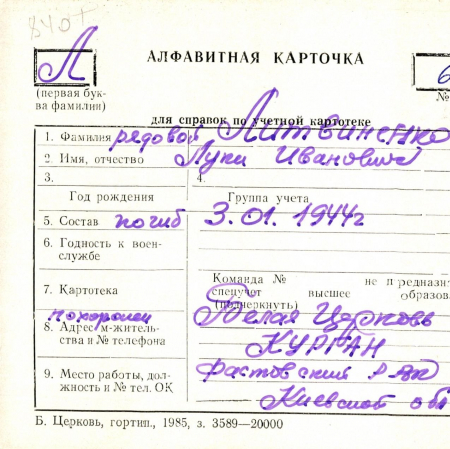 840т
Л
АЛФАВИТНАЯ КАРТОЧКА
6
(первая бук-
ва фамилии)
№
для справок по учетной картотеке
1. Фамилия рядовой Литвиненко
2. Имя, отчество Лука Иванович
3.
4.
Год рождения
Группа учета
5. Состав погиб 3.01.1944г
6. Годность к воен-
службе
Команда № не предназн
7. Картотека
спецучет высшее образова
(подчеркнуть)
похоронен Белая Церковь
8. Адрес м-житель-
ства и № телефона
КУРГАН
9. Место работы, дол-
жность и № тел. ОК
Фастовский р-он
Киевской обл
Б. Церковь, гортип., 1985, з. 3589—20000